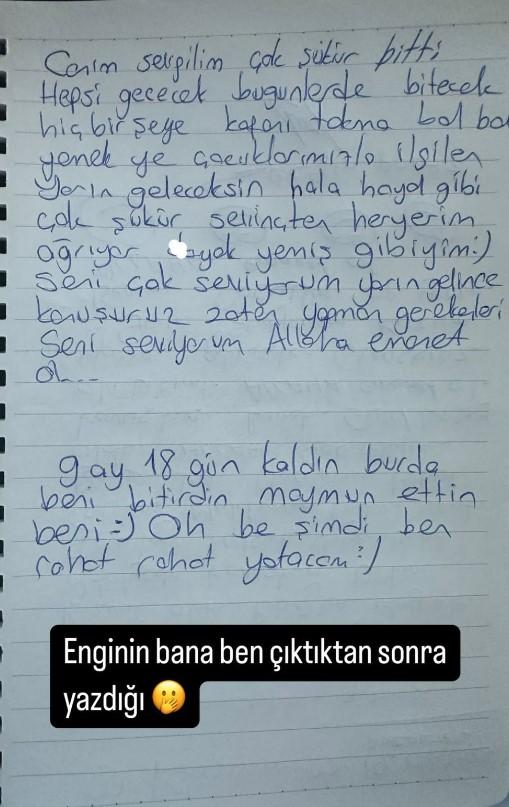 Canım sevgilim çok şükür bitti
Hepsi geçecek bugunlerde bitecek
hiç bir şeye kafanı takma bol bol
yemek ye çocuklarımızla ilgilen
Yarın geleceksin hala hayal gibi
çok şükür sevinçten heryerim
ağrıyor dayak yemiş gibiyim:)
Seni çok seviyorum yarın gelince
konuşuruz zaten yapman gerekenleri
Seni seviyorum Allaha emanet
ol...
9 ay 18 gün kaldın burda
beni bitirdin maymun ettin
beni=) Oh be şimdi ben
rahat rahat yatacam:)
Enginin bana ben çıktıktan sonra
yazdığı 🤭